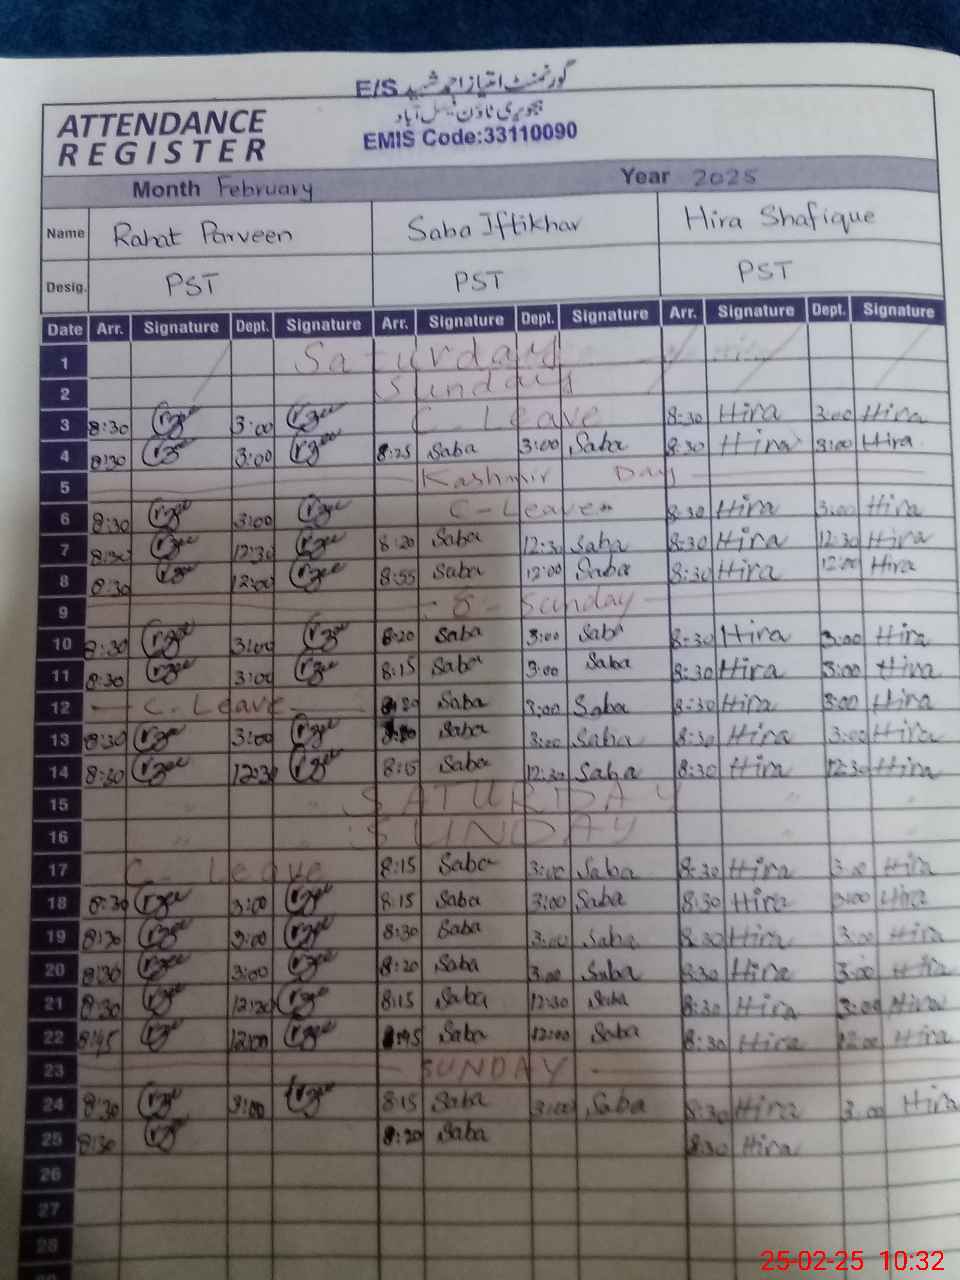 گورنمنٹ امتیاز احمد شہید E/S
ہجویری ٹاؤن فیصل آباد
EMIS Code:33110090
ATTENDANCE
REGISTER
Month February Year 2025
Name Rahat Parveen Saba Iftikhar Hira Shafique
Desig. PST PST PST
Date Arr. Signature Dept. Signature Arr. Signature Dept. Signature Arr. Signature Dept. Signature
1 Saturday
2 Sunday
3 8:30 3:00 C. Leave 8:30 Hira 3:00 Hira
4 8:30 3:00 8:25 Saba 3:00 Saba 8:30 Hira 3:00 Hira
5 Kashmir Day
6 8:30 3:00 C-Leave 8:30 Hira 3:00 Hira
7 8:30 12:30 8:20 Saba 12:30 Saba 8:30 Hira 12:30 Hira
8 8:30 12:00 8:55 Saba 12:00 Saba 8:30 Hira 12:00 Hira
9 Sunday
10 8:30 3:00 8:20 Saba 3:00 Saba 8:30 Hira 3:00 Hira
11 8:30 3:00 8:15 Saba 3:00 Saba 8:30 Hira 3:00 Hira
12 C. Leave Saba 3:00 Saba 8:30 Hira 3:00 Hira
13 8:30 3:00 Saba 3:00 Saba 8:30 Hira 3:00 Hira
14 8:30 12:30 8:15 Saba 12:30 Saba 8:30 Hira 12:30 Hira
15 SATURDAY
16 SUNDAY
17 C. Leave 8:15 Saba 3:00 Saba 8:30 Hira 3:00 Hira
18 8:30 3:00 8:15 Saba 3:00 Saba 8:30 Hira 3:00 Hira
19 8:30 3:00 8:30 Saba 3:00 Saba 8:30 Hira 3:00 Hira
20 8:30 3:00 8:20 Saba 3:00 Saba 8:30 Hira 3:00 Hira
21 8:30 12:30 8:15 Saba 12:30 Saba 8:30 Hira 3:00 Hira
22 8:45 12:00 Saba 12:00 Saba 8:30 Hira 12:00 Hira
23 SUNDAY
24 8:30 3:00 8:15 Saba 3:00 Saba 8:30 Hira 3:00 Hira
25 8:30 8:20 Saba 8:30 Hira
26
27
28
25-02-25 10:32